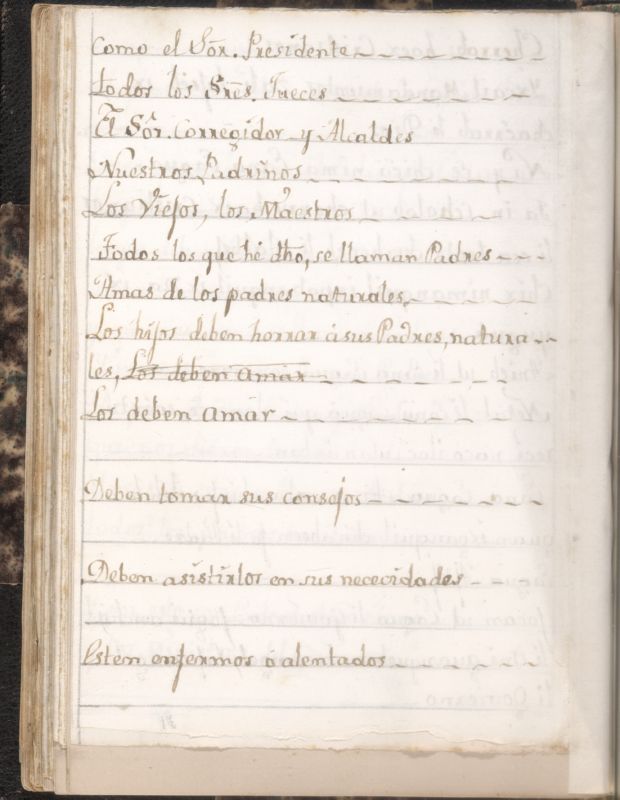 como el Sõr. Presidente
todos los Sres. Jueces
El Sõr. Corregidor y Alcaldes
Nuestros Padrinos
Los Viejos, los Maestros
Todos los que hé dho, se llaman Padres
Amas de los padres naturales,
Los hijos deben honrrar á sus Padres, natura-
les, Los deben amar
Los deben amar
Deben tomar sus consejos
Deben asistirlos en sus nececidades
Esten enfermos ó alentados